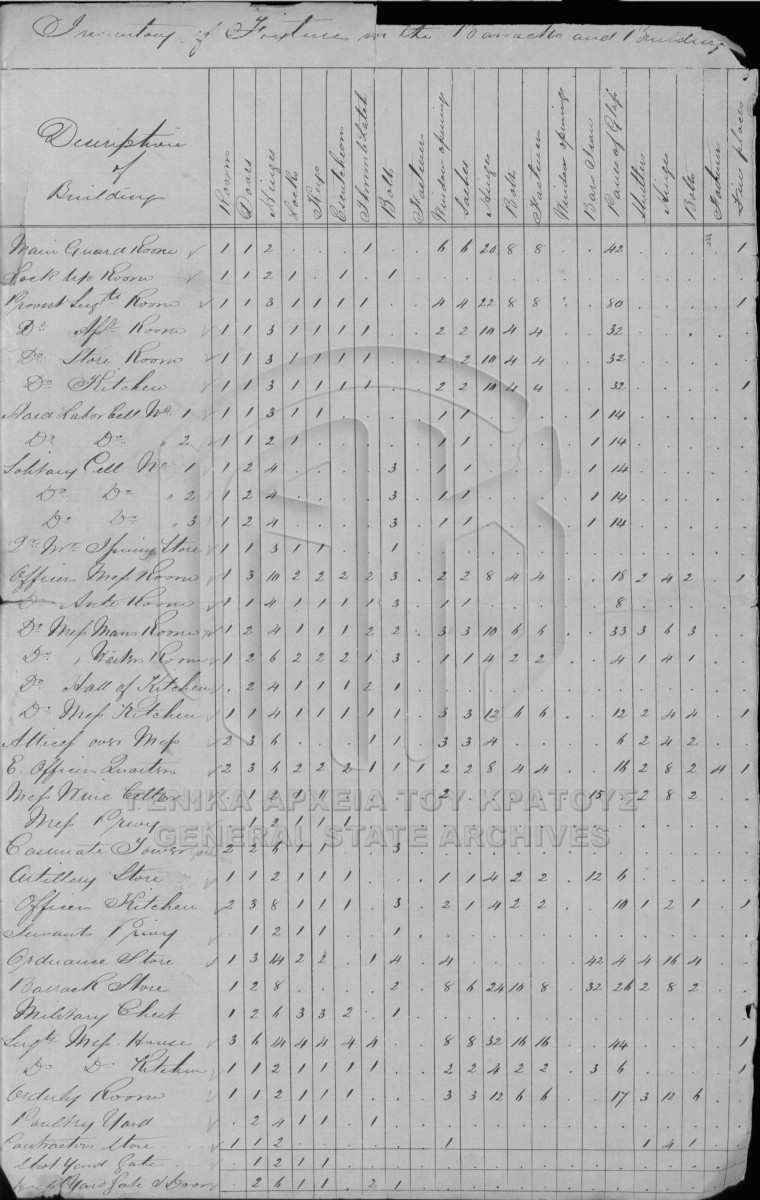 Inventory of Fixtures in the Barracks and Buildings
Description of Building Rooms Doors Hinges Locks Keys Escutcheon Thumb Latch Bolts Fastener Window opening Sashes Hinges Bolts Fastener Window opening Bars Iron Panes of Glass Shutters Hinges Bolts Fastener Fire places
Main Guard Room 1 1 2 . . . 1 . . 6 6 20 8 8 . . 42 . . . . 1
Lock Up Room 1 1 2 1 . 1 . 1 . . . . . . . . . . . . . .
Provost Sergts Room 1 1 3 1 1 1 1 . . 4 4 22 8 8 . . 80 . . . . 1
Do Room 1 1 3 1 1 1 1 . . 2 2 10 4 4 . . 32 . . . . .
Do Store Room 1 1 3 1 1 1 1 . . 2 2 10 4 4 . . 32 . . . . .
Do Kitchen 1 1 3 1 1 1 1 . . 2 2 10 4 4 . . 32 . . . . 1
Hard Labor Cell No 1 1 1 3 1 1 . . . . 1 1 . . . . 1 14 . . . . .
Do Do " 2 1 1 2 1 . . . . . 1 1 . . . . 1 14 . . . . .
Solitary Cell No 1 1 2 4 . . . . 3 . 1 1 . . . . 1 14 . . . . .
Do Do " 2 1 2 4 . . . . 3 . 1 1 . . . . 1 14 . . . . .
Do Do " 3 1 2 4 . . . . 3 . 1 1 . . . . 1 14 . . . . .
Store 1 1 3 1 1 . . 1 . . . . . . . . . . . . . .
Officers Mess Room 1 3 10 2 2 2 2 3 . 2 2 8 4 4 . . 18 2 4 2 . 1
Do Ante Room 1 1 4 1 1 1 1 3 . 1 1 . . . . . 8 . . . . .
Do Mess Mans Room 1 2 4 1 1 1 2 2 . 3 3 10 6 6 . . 33 3 6 3 . .
Do " Waiters Room 1 2 6 2 2 2 1 3 . 1 1 4 2 2 . . 4 1 4 1 . .
Do Hall of Kitchen . 2 4 1 1 1 2 1 . . . . . . . . . . . . . .
Do Mess Kitchen 1 1 4 1 1 1 1 1 . 3 3 12 6 6 . . 12 2 4 4 . 1
Attics over Mess 2 3 6 . . . 1 1 . 3 3 4 . . . . 6 2 4 2 . .
E. Officers Quarters 2 3 6 2 2 2 1 1 1 2 2 8 4 4 . . 16 2 8 2 4 1
Mess Wine Cellar . 1 2 1 1 . . . . 2 . . . . . 15 . 2 8 2 . .
Mess Privy . 1 2 1 1 1 . . . . . . . . . . . . . . . .
Casemate Tower 2 2 6 1 . . . 3 . . . . . . . . . . . . . .
Artillery Store 1 1 2 1 1 1 . . . 1 1 4 2 2 . 12 6 . . . . .
Officers Kitchen 2 3 8 1 1 1 . 3 . 2 1 4 2 2 . . 10 1 2 1 . 1
Servants Privy . 1 2 1 1 . . 1 . . . . . . . . . . . . . .
Ordnance Store 1 3 14 2 2 . 1 4 . 4 . . . . . 42 4 4 16 4 . .
Barrack Store 1 2 8 . . . . 2 . 8 6 24 10 8 . 32 26 2 8 2 . .
Military Chest 1 2 6 3 3 2 . 1 . . . . . . . . . . . . . .
Sergts Mess House 3 6 14 4 4 4 4 . . 8 8 32 16 16 . . 44 . . . . 1
Do Do Kitchen 1 1 2 1 1 1 1 . . 2 2 4 2 2 . 3 6 . . . . 1
Orderly Room 1 1 2 1 1 1 1 . . 3 3 12 6 6 . . 17 3 12 6 . .
Poultry Yard . 2 4 1 1 . 1 . . . . . . . . . . . . . . .
Contractors Store 1 1 2 . . . . . . 1 . . . . . . . 1 4 1 . .
Shot Yard Gate . 1 2 1 1 . . . . . . . . . . . . . . . . .
Yard Gate & Door . 2 6 1 1 . 2 1 . . . . . . . . . . . . . .
ΓΕΝΙΚΑ ΑΡΧΕΙΑ ΤΟΥ ΚΡΑΤΟΥΣ
GENERAL STATE ARCHIVES